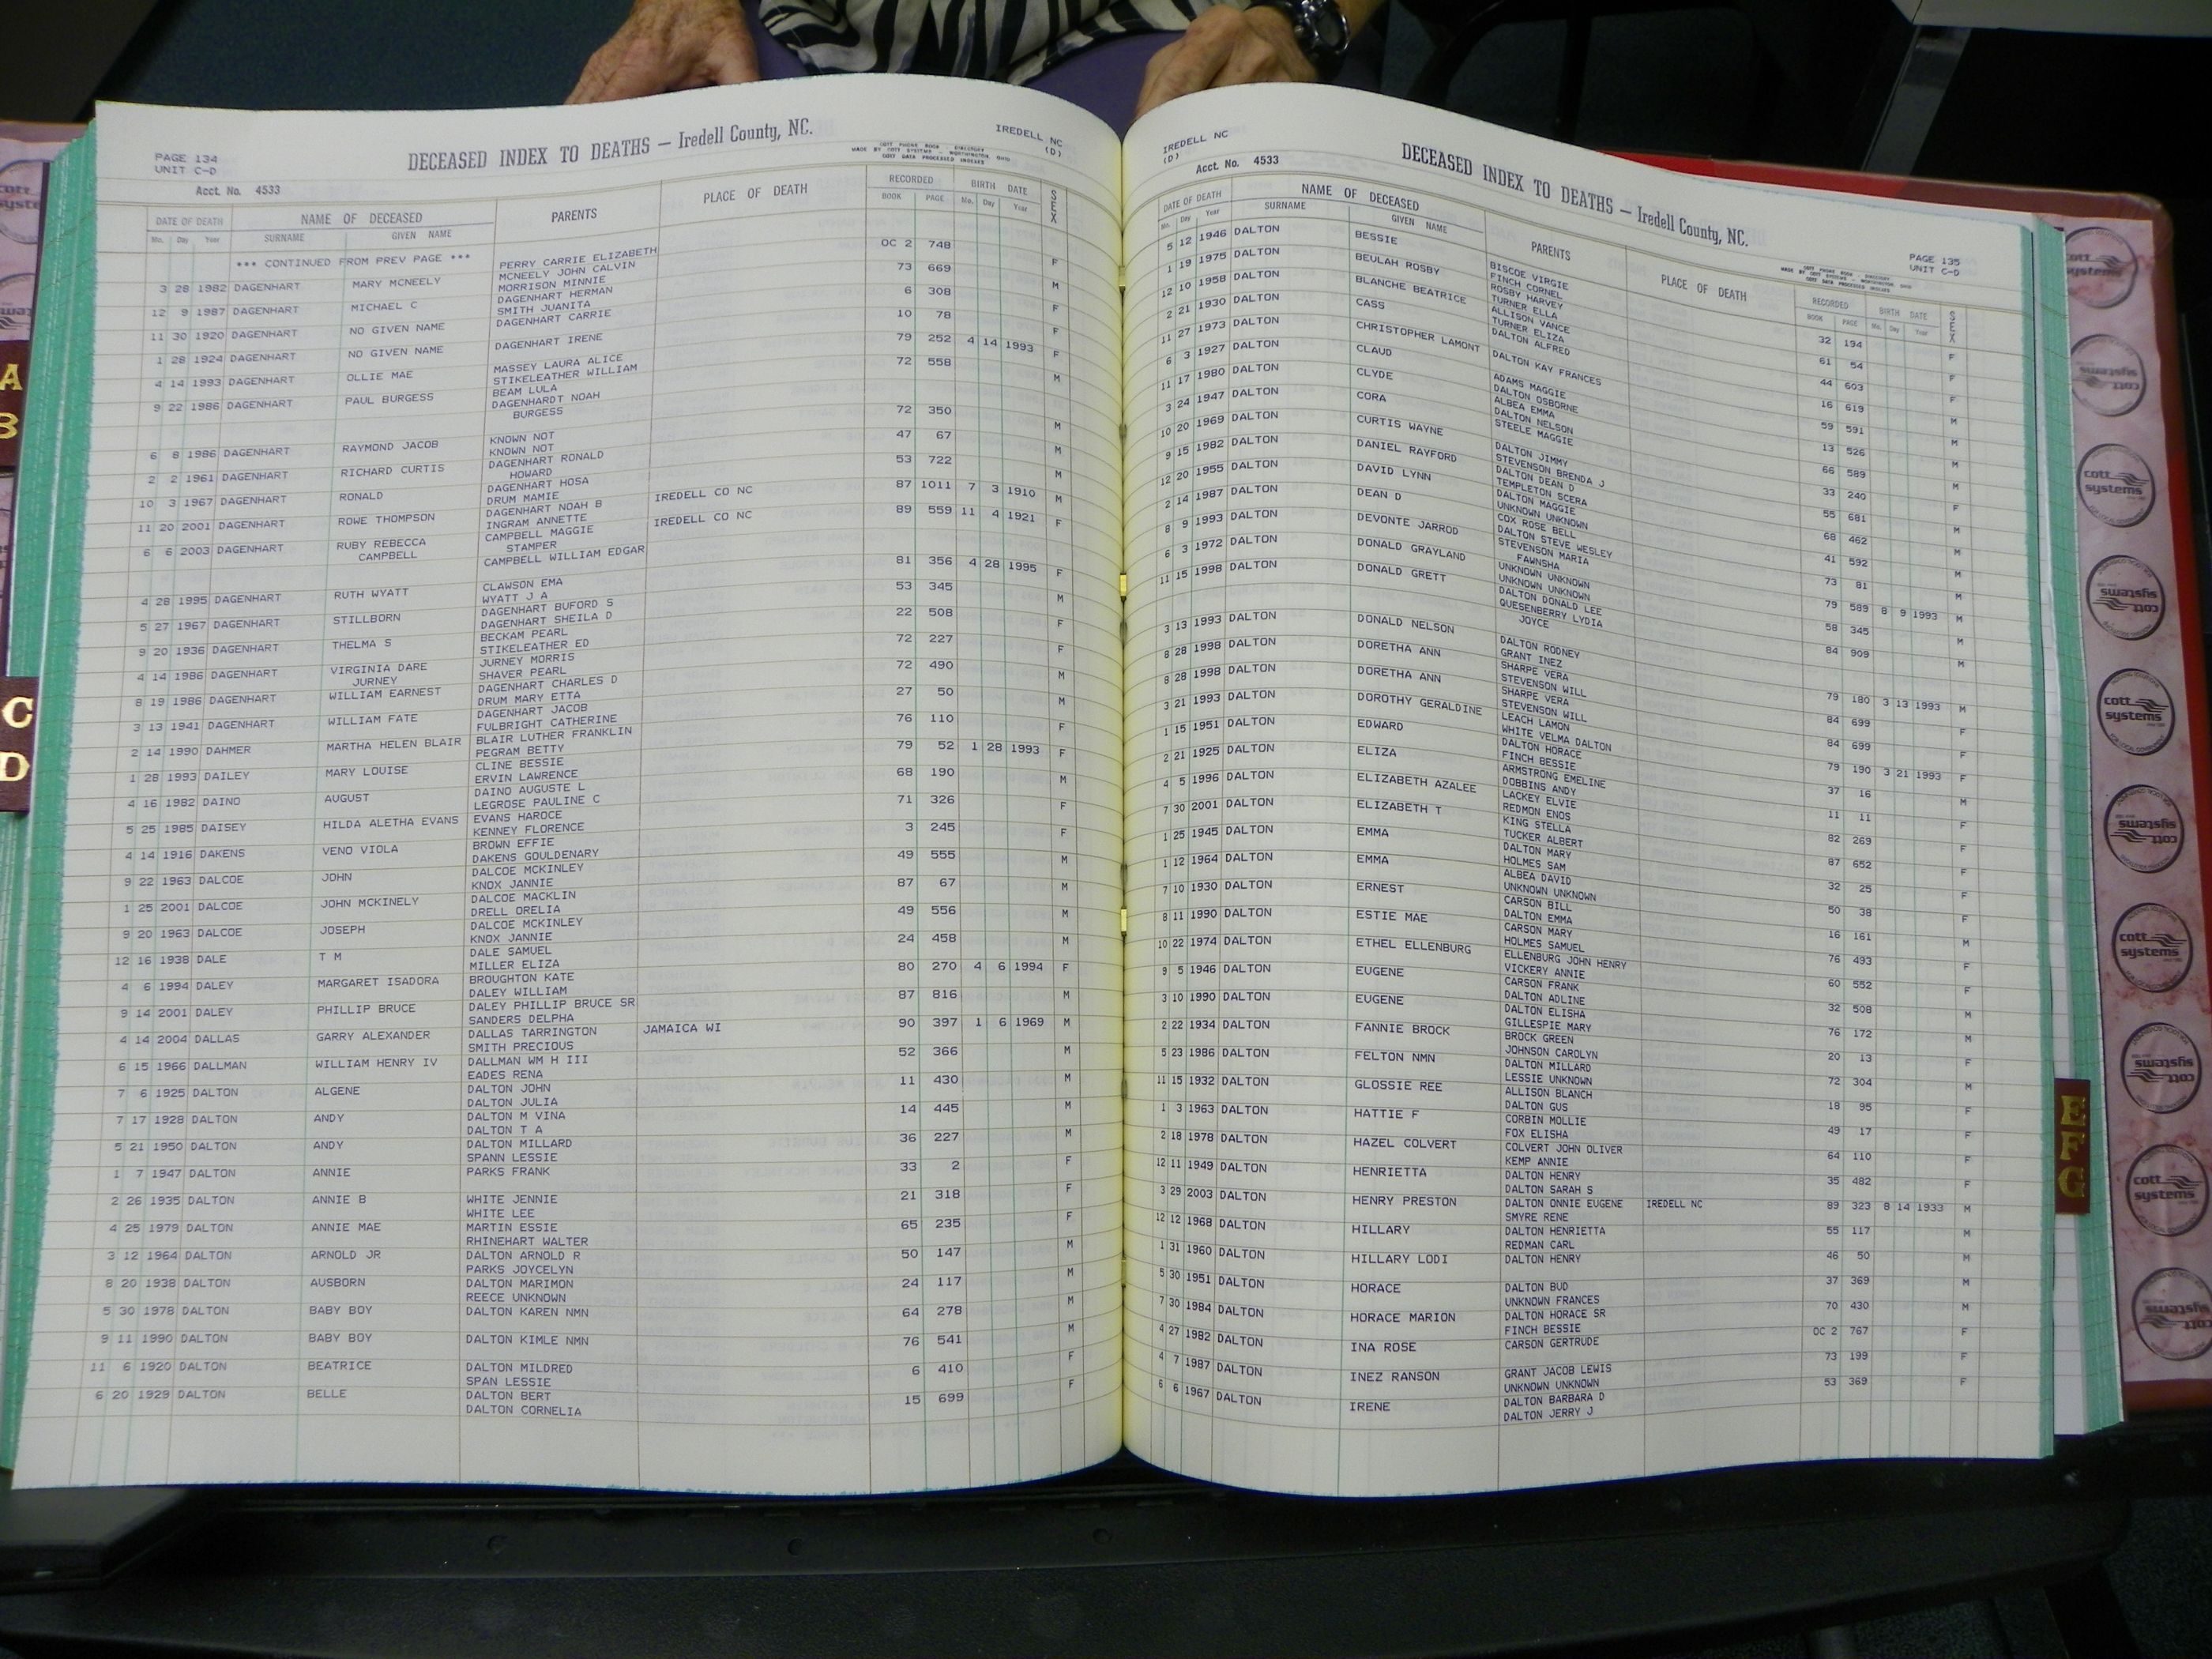 PAGE 134
UNIT C-D
DECEASED INDEX TO DEATHS — Iredell County, NC.
IREDELL NC
(D)
Acct. No. 4533
DATE OF DEATH NAME OF DECEASED PARENTS PLACE OF DEATH RECORDED BIRTH DATE SEX
Mo. Day Year SURNAME GIVEN NAME BOOK PAGE Mo. Day Year
*** CONTINUED FROM PREV PAGE *** PERRY CARRIE ELIZABETH
3 28 1982 DAGENHART MARY MCNEELY MCNEELY JOHN CALVIN OC 2 748 F
MORRISON MINNIE
12 9 1987 DAGENHART MICHAEL C DAGENHART HERMAN 73 669 M
SMITH JUANITA
11 30 1920 DAGENHART NO GIVEN NAME DAGENHART CARRIE 6 308 F
1 28 1924 DAGENHART NO GIVEN NAME DAGENHART IRENE 10 78 F
4 14 1993 DAGENHART OLLIE MAE MASSEY LAURA ALICE 79 252 4 14 1993 F
STIKELEATHER WILLIAM
9 22 1986 DAGENHART PAUL BURGESS BEAM LULA 72 558 M
DAGENHARDT NOAH
BURGESS
6 8 1986 DAGENHART RAYMOND JACOB KNOWN NOT 72 350 M
KNOWN NOT
2 2 1961 DAGENHART RICHARD CURTIS DAGENHART RONALD 47 67 M
HOWARD
10 3 1967 DAGENHART RONALD DAGENHART HOSA 53 722 M
DRUM MAMIE
11 20 2001 DAGENHART ROWE THOMPSON DAGENHART NOAH B IREDELL CO NC 87 1011 7 3 1910 M
INGRAM ANNETTE
6 6 2003 DAGENHART RUBY REBECCA CAMPBELL MAGGIE IREDELL CO NC 89 559 11 4 1921 F
CAMPBELL STAMPER
CAMPBELL WILLIAM EDGAR
4 28 1995 DAGENHART RUTH WYATT CLAWSON EMA 81 356 4 28 1995 F
WYATT J A
5 27 1967 DAGENHART STILLBORN DAGENHART BUFORD S 53 345 M
DAGENHART SHEILA D
9 20 1936 DAGENHART THELMA S BECKAM PEARL 22 508 F
STIKELEATHER ED
4 14 1986 DAGENHART VIRGINIA DARE JURNEY MORRIS 72 227 F
JURNEY SHAVER PEARL
8 19 1986 DAGENHART WILLIAM EARNEST DAGENHART CHARLES D 72 490 M
DRUM MARY ETTA
3 13 1941 DAGENHART WILLIAM FATE DAGENHART JACOB 27 50 M
FULBRIGHT CATHERINE
2 14 1990 DAHMER MARTHA HELEN BLAIR BLAIR LUTHER FRANKLIN 76 110 F
PEGRAM BETTY
1 28 1993 DAILEY MARY LOUISE CLINE BESSIE 79 52 1 28 1993 F
ERVIN LAWRENCE
4 16 1982 DAINO AUGUST DAINO AUGUSTE L 68 190 M
LEGROSE PAULINE C
5 25 1985 DAISEY HILDA ALETHA EVANS EVANS HAROCE 71 326 F
KENNEY FLORENCE
4 14 1916 DAKENS VENO VIOLA BROWN EFFIE 3 245 F
DAKENS GOULDENARY
9 22 1963 DALCOE JOHN DALCOE MCKINLEY 49 555 M
KNOX JANNIE
1 25 2001 DALCOE JOHN MCKINELY DALCOE MACKLIN 87 67 M
DRELL ORELIA
9 20 1963 DALCOE JOSEPH DALCOE MCKINLEY 49 556 M
KNOX JANNIE
12 16 1938 DALE T M DALE SAMUEL 24 458 M
MILLER ELIZA
4 6 1994 DALEY MARGARET ISADORA BROUGHTON KATE 80 270 4 6 1994 F
DALEY WILLIAM
9 14 2001 DALEY PHILLIP BRUCE DALEY PHILLIP BRUCE SR 87 816 M
SANDERS DELPHA
4 14 2004 DALLAS GARRY ALEXANDER DALLAS TARRINGTON JAMAICA WI 90 397 1 6 1969 M
SMITH PRECIOUS
6 15 1966 DALLMAN WILLIAM HENRY IV DALLMAN WM H III 52 366 M
EADES RENA
7 6 1925 DALTON ALGENE DALTON JOHN 11 430 M
DALTON JULIA
7 17 1928 DALTON ANDY DALTON M VINA 14 445 M
DALTON T A
5 21 1950 DALTON ANDY DALTON MILLARD 36 227 M
SPANN LESSIE
1 7 1947 DALTON ANNIE PARKS FRANK 33 2 F
2 26 1935 DALTON ANNIE B WHITE JENNIE 21 318 F
WHITE LEE
4 25 1979 DALTON ANNIE MAE MARTIN ESSIE 65 235 F
RHINEHART WALTER
3 12 1964 DALTON ARNOLD JR DALTON ARNOLD R 50 147 M
PARKS JOYCELYN
8 20 1938 DALTON AUSBORN DALTON MARIMON 24 117 M
REECE UNKNOWN
5 30 1978 DALTON BABY BOY DALTON KAREN NMN 64 278 M
9 11 1990 DALTON BABY BOY DALTON KIMLE NMN 76 541 M
11 6 1920 DALTON BEATRICE DALTON MILDRED 6 410 F
SPAN LESSIE
6 20 1929 DALTON BELLE DALTON BERT 15 699 F
DALTON CORNELIA
IREDELL NC
(D)
Acct. No. 4533
DECEASED INDEX TO DEATHS — Iredell County, NC.
PAGE 135
UNIT C-D
DATE OF DEATH NAME OF DECEASED PARENTS PLACE OF DEATH RECORDED BIRTH DATE SEX
Mo. Day Year SURNAME GIVEN NAME BOOK PAGE Mo. Day Year
5 12 1946 DALTON BESSIE BISCOE VIRGIE 32 194 F
FINCH CORNEL
1 19 1975 DALTON BEULAH ROSBY ROSBY HARVEY 61 54 F
TURNER ELLA
12 10 1958 DALTON BLANCHE BEATRICE ALLISON VANCE 44 603 F
TURNER ELIZA
2 21 1930 DALTON CASS DALTON ALFRED 16 619 M
11 27 1973 DALTON CHRISTOPHER LAMONT DALTON KAY FRANCES 59 591 M
6 3 1927 DALTON CLAUD ADAMS MAGGIE 13 526 M
DALTON OSBORNE
11 17 1980 DALTON CLYDE ALBEA EMMA 66 589 M
DALTON NELSON
3 24 1947 DALTON CORA STEELE MAGGIE 33 240 F
10 20 1969 DALTON CURTIS WAYNE DALTON JIMMY 55 681 M
STEVENSON BRENDA J
9 15 1982 DALTON DANIEL RAYFORD DALTON DEAN D 68 462 M
TEMPLETON SCERA
12 20 1955 DALTON DAVID LYNN DALTON MAGGIE 41 592 M
UNKNOWN UNKNOWN
2 14 1987 DALTON DEAN D COX ROSE BELL 73 81 M
DALTON STEVE WESLEY
8 9 1993 DALTON DEVONTE JARROD STEVENSON MARIA 79 589 8 9 1993 M
FAWNSHA
6 3 1972 DALTON DONALD GRAYLAND UNKNOWN UNKNOWN 58 345 M
UNKNOWN UNKNOWN
11 15 1998 DALTON DONALD GRETT DALTON DONALD LEE 84 909 M
QUESENBERRY LYDIA
JOYCE
3 13 1993 DALTON DONALD NELSON DALTON RODNEY 79 180 3 13 1993 M
GRANT INEZ
8 28 1998 DALTON DORETHA ANN SHARPE VERA 84 699 F
STEVENSON WILL
8 28 1998 DALTON DORETHA ANN SHARPE VERA 84 699 F
STEVENSON WILL
3 21 1993 DALTON DOROTHY GERALDINE LEACH LAMON 79 190 3 21 1993 F
WHITE VELMA DALTON
1 15 1951 DALTON EDWARD DALTON HORACE 37 16 M
FINCH BESSIE
2 21 1925 DALTON ELIZA ARMSTRONG EMELINE 11 11 F
DOBBINS ANDY
4 5 1996 DALTON ELIZABETH AZALEE LACKEY ELVIE 82 269 F
REDMON ENOS
7 30 2001 DALTON ELIZABETH T KING STELLA 87 652 F
TUCKER ALBERT
1 25 1945 DALTON EMMA DALTON MARY 32 25 F
HOLMES SAM
1 12 1964 DALTON EMMA ALBEA DAVID 50 38 F
UNKNOWN UNKNOWN
7 10 1930 DALTON ERNEST CARSON BILL 16 161 M
DALTON EMMA
8 11 1990 DALTON ESTIE MAE CARSON MARY 76 493 F
HOLMES SAMUEL
10 22 1974 DALTON ETHEL ELLENBURG ELLENBURG JOHN HENRY 60 552 F
VICKERY ANNIE
9 5 1946 DALTON EUGENE CARSON FRANK 32 508 M
DALTON ADLINE
3 10 1990 DALTON EUGENE DALTON ELISHA 76 172 M
GILLESPIE MARY
2 22 1934 DALTON FANNIE BROCK BROCK GREEN 20 13 F
JOHNSON CAROLYN
5 23 1986 DALTON FELTON NMN DALTON MILLARD 72 304 M
LESSIE UNKNOWN
11 15 1932 DALTON GLOSSIE REE ALLISON BLANCH 18 95 F
DALTON GUS
1 3 1963 DALTON HATTIE F CORBIN MOLLIE 49 17 F
FOX ELISHA
2 18 1978 DALTON HAZEL COLVERT COLVERT JOHN OLIVER 64 110 F
KEMP ANNIE
12 11 1949 DALTON HENRIETTA DALTON HENRY 35 482 F
DALTON SARAH S
3 29 2003 DALTON HENRY PRESTON DALTON ONNIE EUGENE IREDELL NC 89 323 8 14 1933 M
SMYRE RENE
12 12 1968 DALTON HILLARY DALTON HENRIETTA 55 117 M
REDMAN CARL
1 31 1960 DALTON HILLARY LODI DALTON HENRY 46 50 M
5 30 1951 DALTON HORACE DALTON BUD 37 369 M
UNKNOWN FRANCES
7 30 1984 DALTON HORACE MARION DALTON HORACE SR 70 430 M
FINCH BESSIE
4 27 1982 DALTON INA ROSE CARSON GERTRUDE OC 2 767 F
4 7 1987 DALTON INEZ RANSON GRANT JACOB LEWIS 73 199 F
UNKNOWN UNKNOWN
6 6 1967 DALTON IRENE DALTON BARBARA D 53 369 F
DALTON JERRY J
A
B
C
D
E
F
G
cott
systems